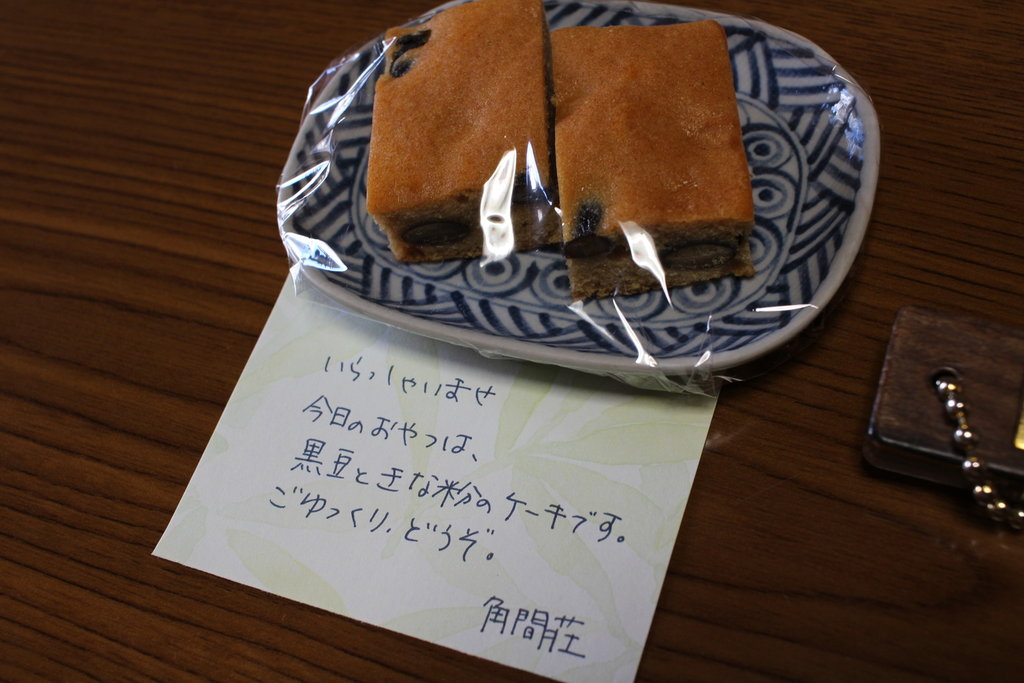 いらっしゃいませ
今日のおやつは、
黒豆ときな粉のケーキです。
ごゆっくり、どうぞ。
角間荘